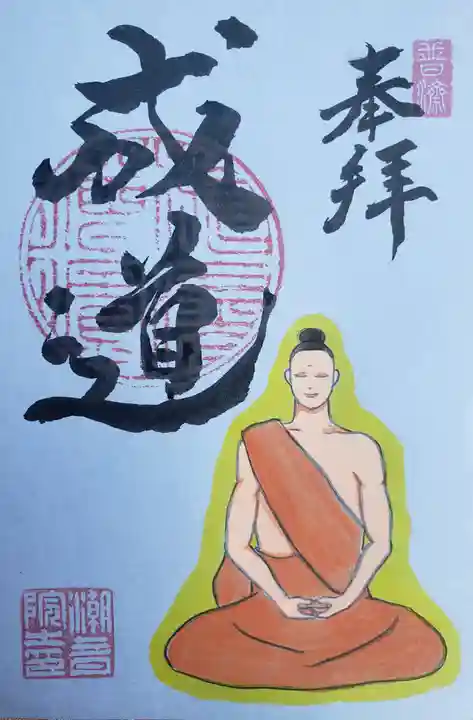 奉拝
成道
普濟
潮音院印